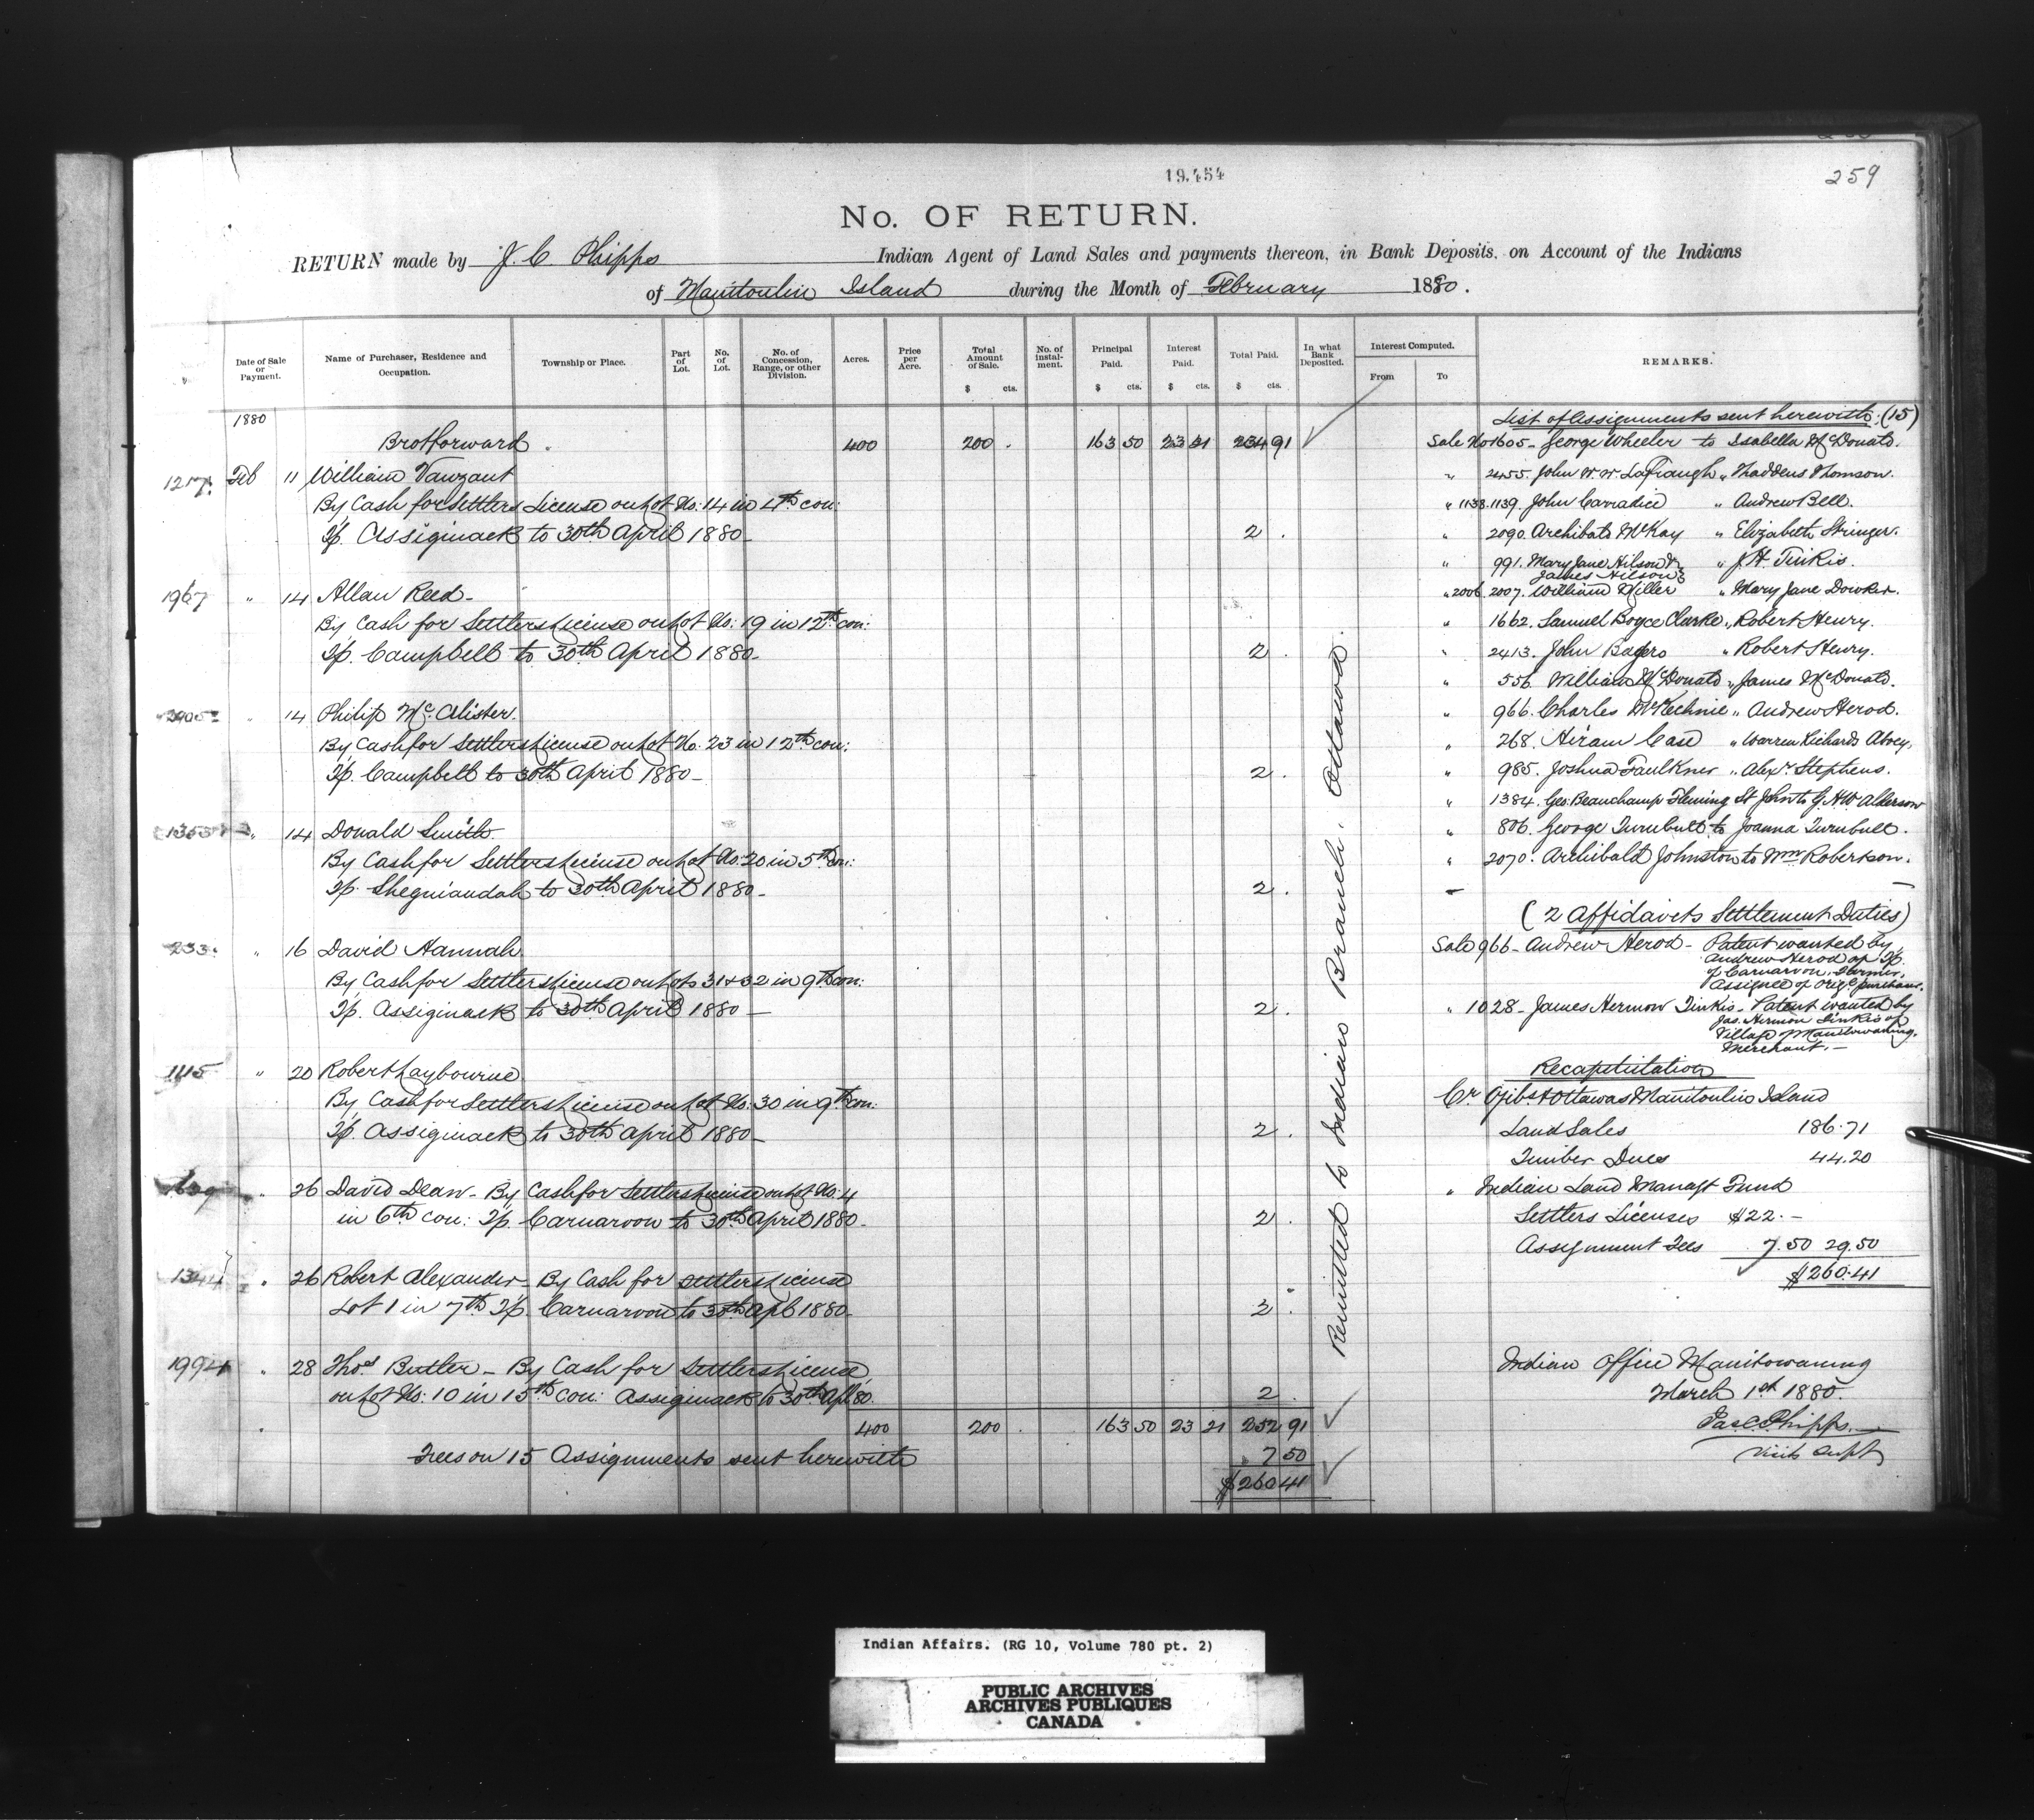 19,454
259
No. OF RETURN.
RETURN made by J. C. Phipps Indian Agent of Land Sales and payments thereon, in Bank Deposits, on Account of the Indians
of Manitoulin Island during the Month of February 1880.
Date of Sale or Payment.
Name of Purchaser, Residence and Occupation.
Township or Place.
Part of Lot.
No. of Lot.
No. of Concession, Range, or other Division.
Acres.
Price per Acre.
Total Amount of Sale. $ cts.
No. of instal-ment.
Principal Paid. $ cts.
Interest Paid. $ cts.
Total Paid. $ cts.
In what Bank Deposited.
Interest Computed.
From
To
REMARKS.
1880
Brotforward 400 200 . 163 50 23 21 234 91
1217 Feb 11 William Vanzant
By Cash for Settlers License on Lot No: 14 in 4th con:
Tp. Assiginack to 30th April 1880 2 .
1967 " 14 Allan Reed
By Cash for Settlers License on Lot No: 19 in 12th con:
Tp. Campbell to 30th April 1880 2 .
" 14 Philip McAlister.
By Cash for Settlers License on Lot No. 23 in 12th con:
Tp. Campbell to 30th April 1880 2 .
1353 " 14 Donald Smith.
By Cash for Settlers License on Lot No: 20 in 5th con:
Tp. Sheguiandah to 30th April 1880 2 .
233 " 16 David Hannah.
By Cash for Settlers License on Lots 31 & 32 in 9th con:
Tp. Assiginack to 30th April 1880 2 .
1115 " 20 Robert Laybourne
By Cash for Settlers License on Lot No: 30 in 9th con:
Tp. Assiginack to 30th April 1880 2 .
" 26 David Dean - By Cash for Settlers License on Lot No: 4
in 6th con: Tp. Carnarvon to 30th April 1880 2 .
1344 " 26 Robert Alexander - By Cash for Settlers License
Lot 1 in 7th Tp. Carnarvon to 30th Apl 1880 2 .
1994 " 28 Thos Butler - By Cash for Settlers License
on Lot No: 10 in 15th Con: Assiginack to 30th Apl 80. 2 .
400 200 . 163 50 23 21 252 91
Fees on 15 Assignments sent herewith 7 50
$260 41
Remitted to Indian Branch. Ottawa.
List of Assignments sent herewith (15)
Sale No 1605 - George Wheeler to Isabella McDonald.
" 2455. John W. W. Lafraugh " Thaddeus Thomson.
" 1138.1139. John Carradice " Andrew Bell.
" 2090. Archibald McKay " Elizabeth Stringer.
" 991. Mary Jane Hilson &
James Hilson " J. H. Tinkis.
" 2006 2007. William Miller " Mary Jane Dowker.
" 1662. Samuel Boyce Clarke " Robert Henry.
" 2413. John Rogers " Robert Henry.
556 William McDonald " James McDonald.
" 966. Charles McKechnie " Andrew Herod.
" 268. Hiram Case " Warren Richards
" 985. Joshua Faulkner " Alexr Stephens.
" 1384. Geo: Beauchamp Fleming St John to G. H. W. Alderson
" 806. George Turnbull to Joanna Turnbull.
" 2070. Archibald Johnston to Wm Robertson.
(2 Affidavits Settlement Duties)
Sale 966 - Andrew Herod - Patent wanted by
Andrew Herod of Tp.
of Carnarvon, Farmer,
Assignee of orig. purchaser.
" 1028 - James Hermon Tinkis - Patent wanted by
Jas. Hermon Tinkis of
Village of Manitowaning.
Merchant. -
Recapitulation
Cr Ojibs & Ottawas Manitoulin Island
Land Sales 186.71
Timber Dues 44.20
" Indian Land Managt Fund
Settlers Licenses $22. -
Assignment Fees 7.50 29.50
$260.41
Indian Office Manitowaning
March 1st 1880.
Jas C Phipps.
Visitg Supt
Indian Affairs. (RG 10, Volume 780 pt. 2)
PUBLIC ARCHIVES
ARCHIVES PUBLIQUES
CANADA